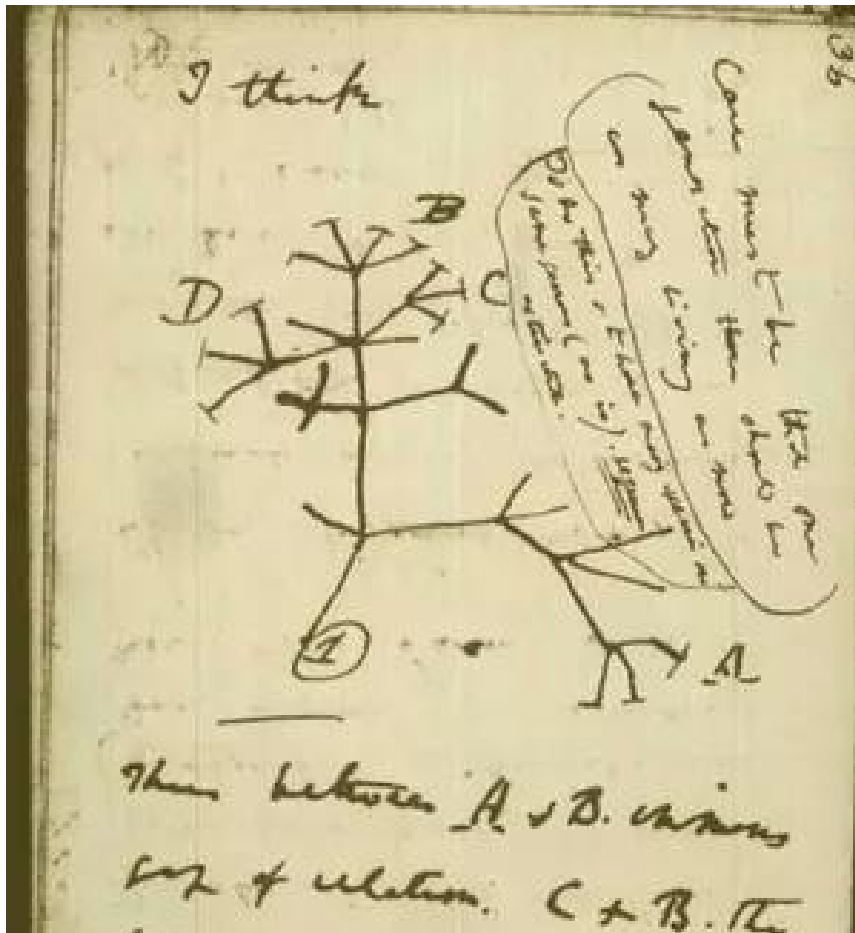 36
I think
Case must be that one
generation then should be
as many living as now
To do this & to have many species in
same genus (as is). requires
extinction.
B
C
D
1
A
Thus between A & B. immense
gap of relation. C & B. The